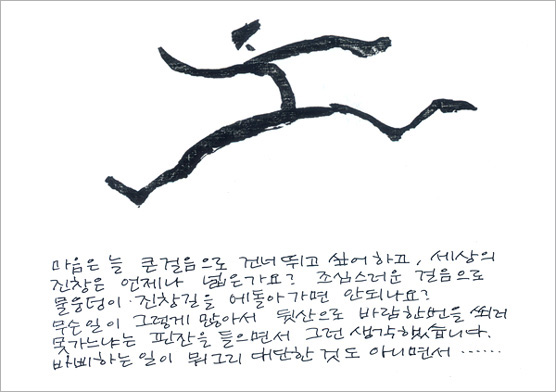 마음은 늘 큰걸음으로 건너뛰고 싶어하고, 세상의
진창은 언제나 넓은가요? 조심스러운 걸음으로
물웅덩이·진창길을 에돌아가면 안되나요?
무슨일이 그렇게 많아서 뒷산으로 바람한번을 쐬러
못가느냐는 핀잔을 들으면서 그런 생각했습니다.
바삐하는일이 뭐그리 대단한 것도 아니면서 ······